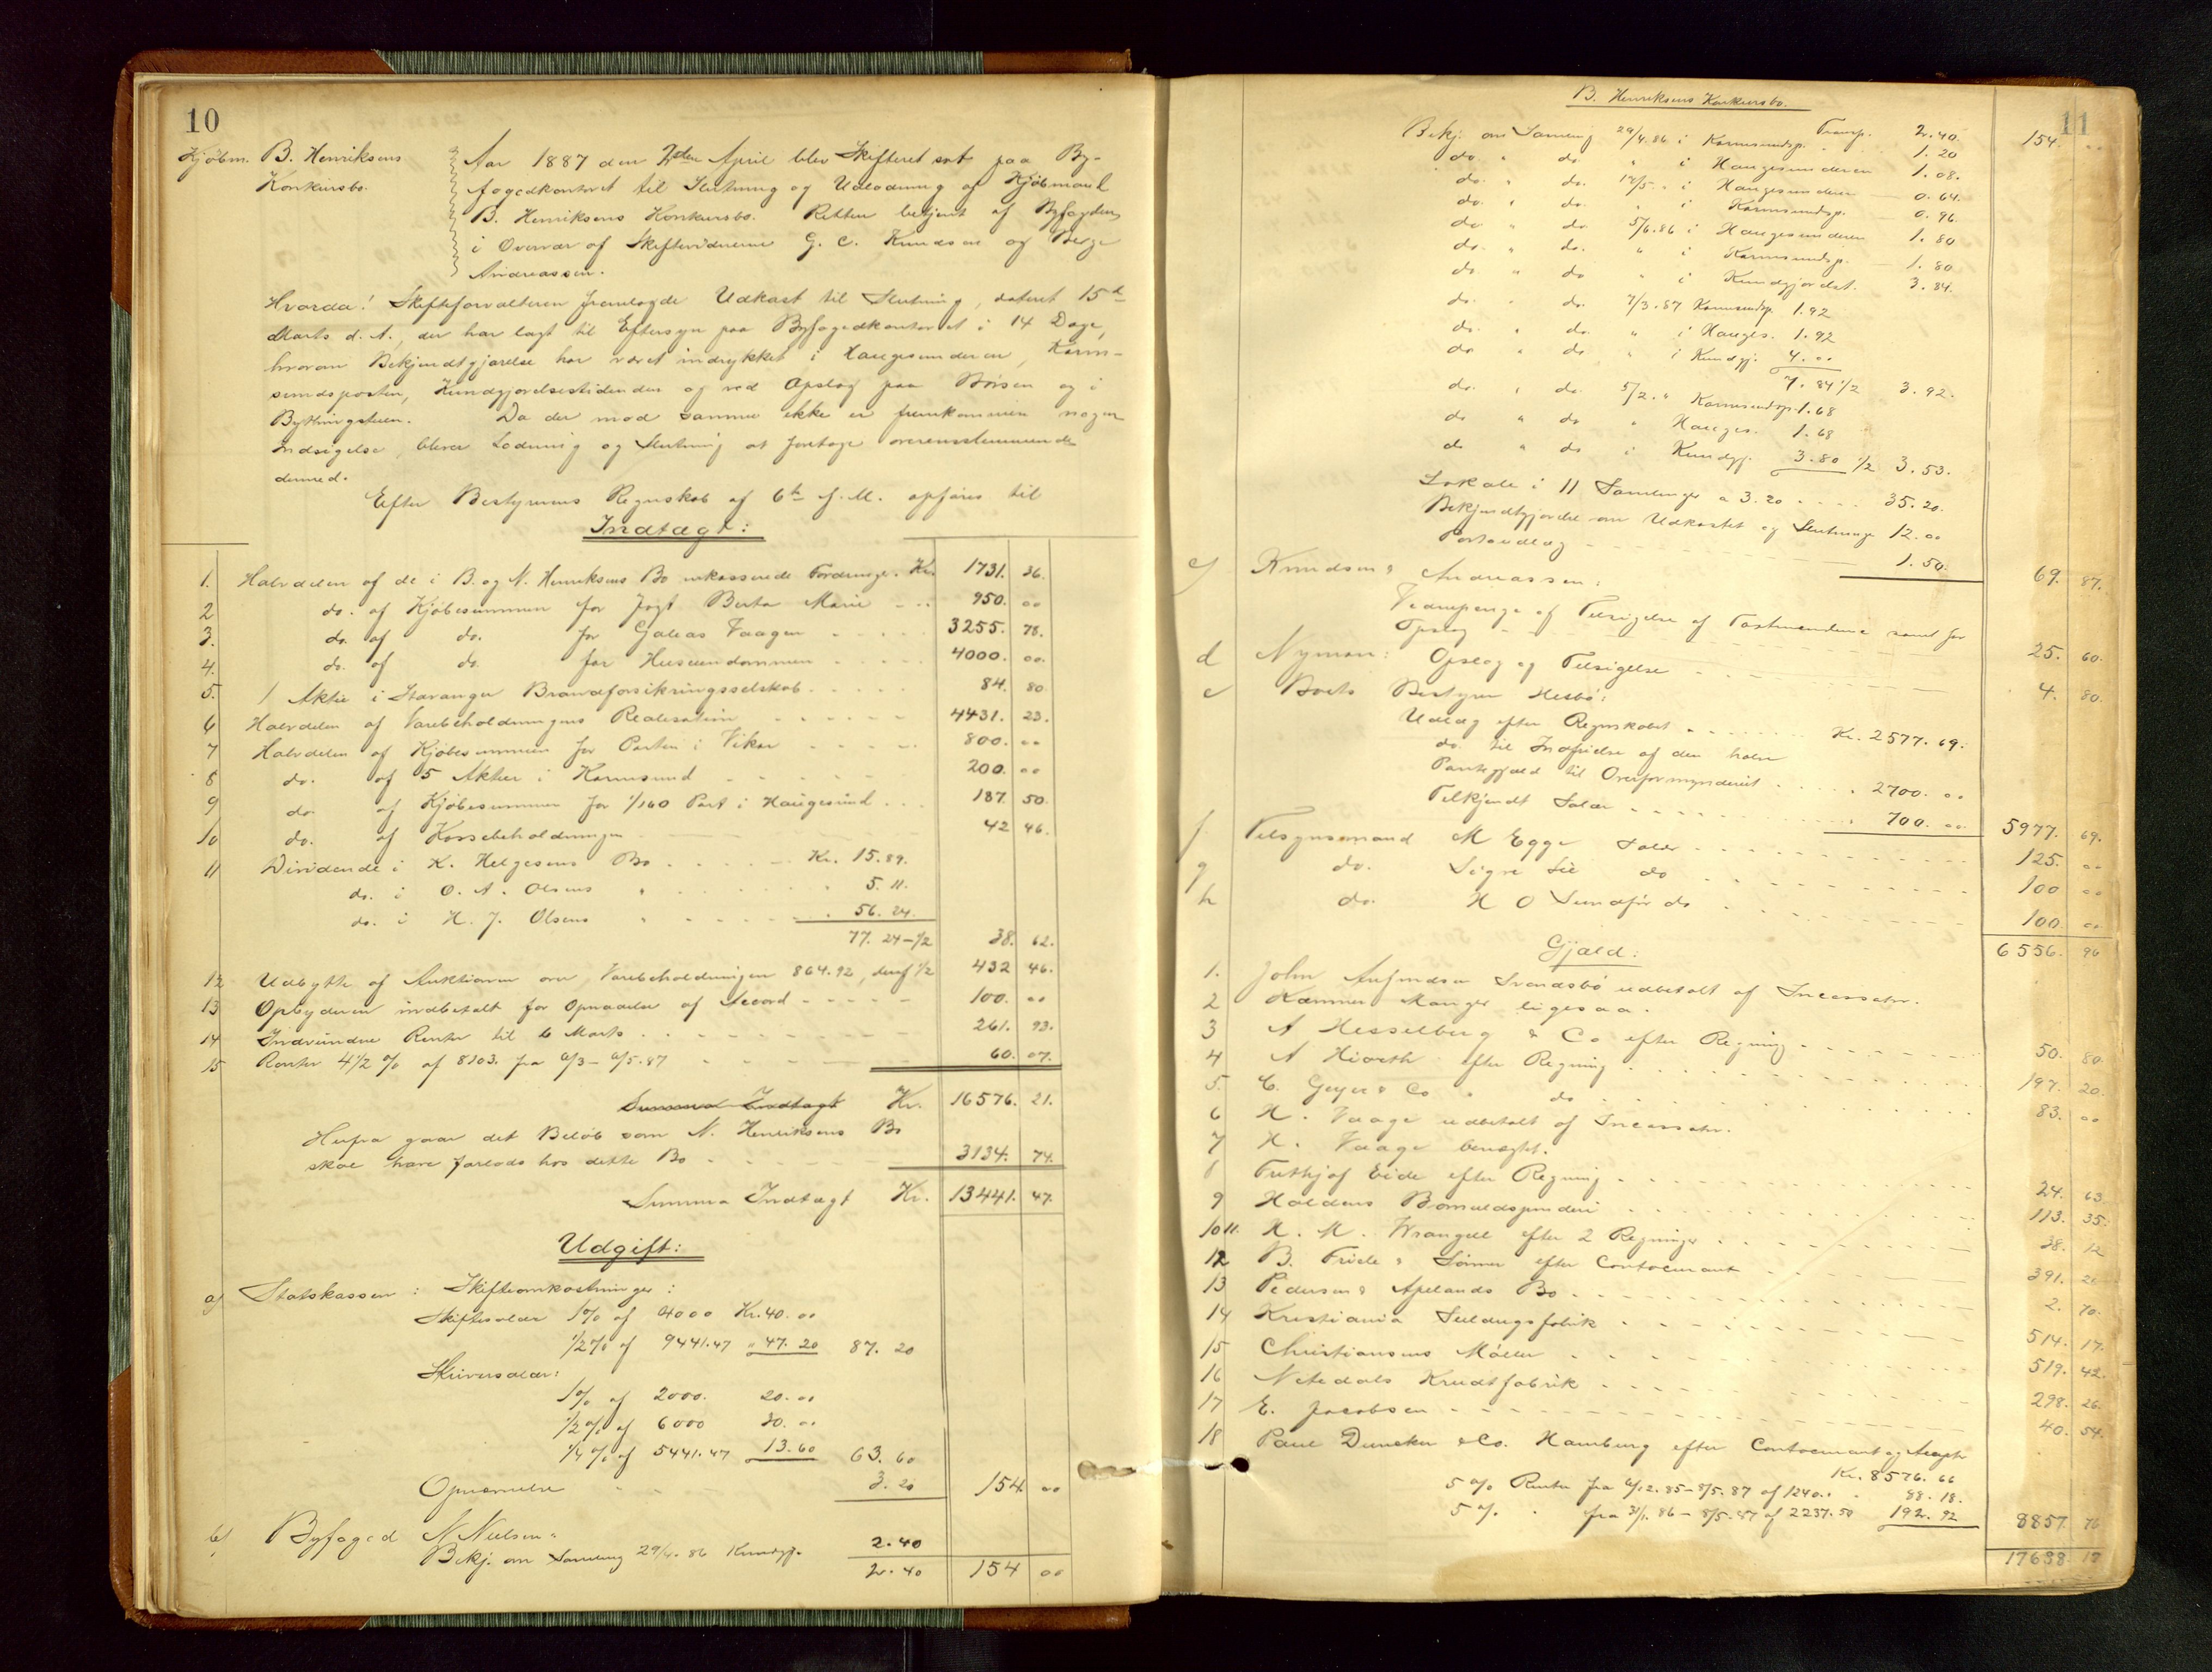 10
Kjøbm. B. Henriksens
Konkursbo.
Aar 1887 den 2den April blev Skifteret sat paa By-
fogedkontoret til Slutning og Udlodning af Kjøbmand
B. Henriksens Konkursbo. Retten betjent af Byfogden
i Overvær af Skiftevidnerne G. C. Knudsen og Berge
Andreassen.
Hvorda! Skifteforvalteren fremlagde Udkast til Slutning, dateret 15de
Marts d. A., der har lagt til Eftersyn paa Byfogedkontoret i 14 Dage,
hvorom Bekjendtgjørelse har været indrykket i Haugesunderen, Karm-
sundsposten, Kundgjørelsestidenden og ved Opslag paa Børsen og i
Bythingstuen. Da der mod samme ikke er fremkommen nogen
Indsigelse, blever Lodning og Slutning at foretage overensstemmende
dermed.
Efter Bestyrerens Regnskab af 6te f. M. opføres til
Indtægt:
1. Halvdelen af de i B. og N. Henriksens Bo inkasserede Fordringer. Kr. 1731. 36.
2 do. af Kjøbesummen for Jagt Berta Marie 950. 00
3. do. af do. for Galeas Vaagen 3255. 78.
4. do. af do. for Huseiendommen 4000. 00.
5. 1 Aktie i Stavanger Brandforsikringsselskab 84. 80
6 Halvdelen af Varebeholdningens Realisation 4431. 23.
7 Halvdelen af Kjøbesummen for Parten i Vikar 800. 00
8 do. af 5 Aktier i Karmsund 200. 00
9 do. af Kjøbesummen for 1/160 Part i Haugesund 187. 50.
10 do. af Kassebeholdningen 42 46.
11 Dividende i K. Helgesens Bo Kr. 15.89.
do. i O. A. Olsens " 5. 11.
do. i H. J. Olsens " 56. 24.
77. 24 - 1/2 38. 62.
12 Udbytte af Auktionen over Varebeholdningen 864.92, deraf 1/2 432 46.
13 Opbyderen indbetalt for Opnaaelse af Accord 100. 00
14 Indvundne Renter til 6 Marts 261. 93.
15 Renter 4 1/2 % af 8103. fra 6/3 - 6/5.87 60. 07.
Summa Indtægt Kr. 16576. 21.
Herfra gaar det Beløb som N. Henriksens Bo
skal have forlods hos dette Bo 3134. 74.
Summa Indtægt Kr. 13441. 47.
Udgift:
a) Statskassen: Skifteomkostninger:
Skiftesalær 1% af 4000 Kr. 40. 00
1/2% af 9441.47 " 47. 20 87. 20
Skriversalær:
1% af 2000. 20. 00
1/2% af 6000 30. 00
1/4% af 5441.47 13.60 63. 60
Opnævnelse 3. 20 154 00
b) Byfoged N Nielsen:
Bekj. om Samling 29/4. 86 Kundgj. 2.40
2. 40 154 00
11
B. Henriksens Konkursbo.
Transp. 2.40. 154. 00
Bekj. om Samling 29/4.86 i Karmsundsp. 1.20
do. " do. " i Haugesunderen 1.08.
do. " do. 14/5. " i Haugesunderen 0.64.
do. " do. " i Karmsundsp. 0.96.
do " do 5/6.86 i Haugesunderen 1.80
do. " do. " i Karmsundsp. 1.80
do. " do " i Kundgjørelst. 3.84.
do. " do. 7/3.87 Karmsundsp. 1.92
do. " do. " i Hauges. 1.92
do " do " i Kundgj. 4.00
7.84 1/2 3.92.
do. " do. 5/2. " Karmsundsp. 1.68
do " do " Hauges. 1.68
do " do i Kundgj. 3.80 1/2 3.53.
Lokale i 11 Samlinger a 3.20 35.20.
Bekjendtgjørelse om Udkastet og Slutninge 12.00
Portoudlæg 1.50. 69. 87.
c) Knudsen & Andreassen:
Vidnepenge af Tilsigelse af Taxtmændene samt for
Opslag 25. 60.
d Nyman: Opslag og Tilsigelse 4. 80.
e Boets Bestyrer Hesbø:
Udlæg efter Regnskabet Kr. 2577.69.
do. til Indfrielse af den halve
Pantegjæld til Overformynderiet 2700.00
Tilkjendt Salær 700.00 5977. 69.
f Tilsynsmand M Egge Salær 125. 00
g do. do 100 00
h do. H O Sundfør do 100. 00
6556. 96
Gjæld:
1. John Svendsbø udbetalt af Incassator.
2 Kæmner Mauger ligesaa.
3 A Hesselberg & Co efter Regning 50. 80.
4 A Hiorth efter Regning 197. 20.
5. C. Geyer & Co " do 83. 00
6 H. Vaage udbetalt af Incassator.
7 H. Vaage benægtet.
8 Frithjof Eide efter Regning 24. 63
9 Haldens Bomuldspinderi 113. 35.
10 11. H. M. Wrangell efter 2 Regninger 38. 12
12 B. Friele & Sønner efter Contocurant 391. 21
13 Pedersen & Apelands Bo 2. 70.
14 Kristiania Sildugsfabrik 514. 17.
15 Christiansens Møller 519. 42.
16 Nitedals Krudtfabrik 298. 26.
17 E. Jacobsen 40. 54.
18 Paul Duncker & Co. Hamburg efter Contocurant og Accept
Kr. 8576. 66
5 % Renter fra 6/12.85 - 8/5.87 af 1240.. 88.18.
5 % " fra 31/1.86 - 8/5.87 af 2237.50 192.92 8857. 76
17688 12